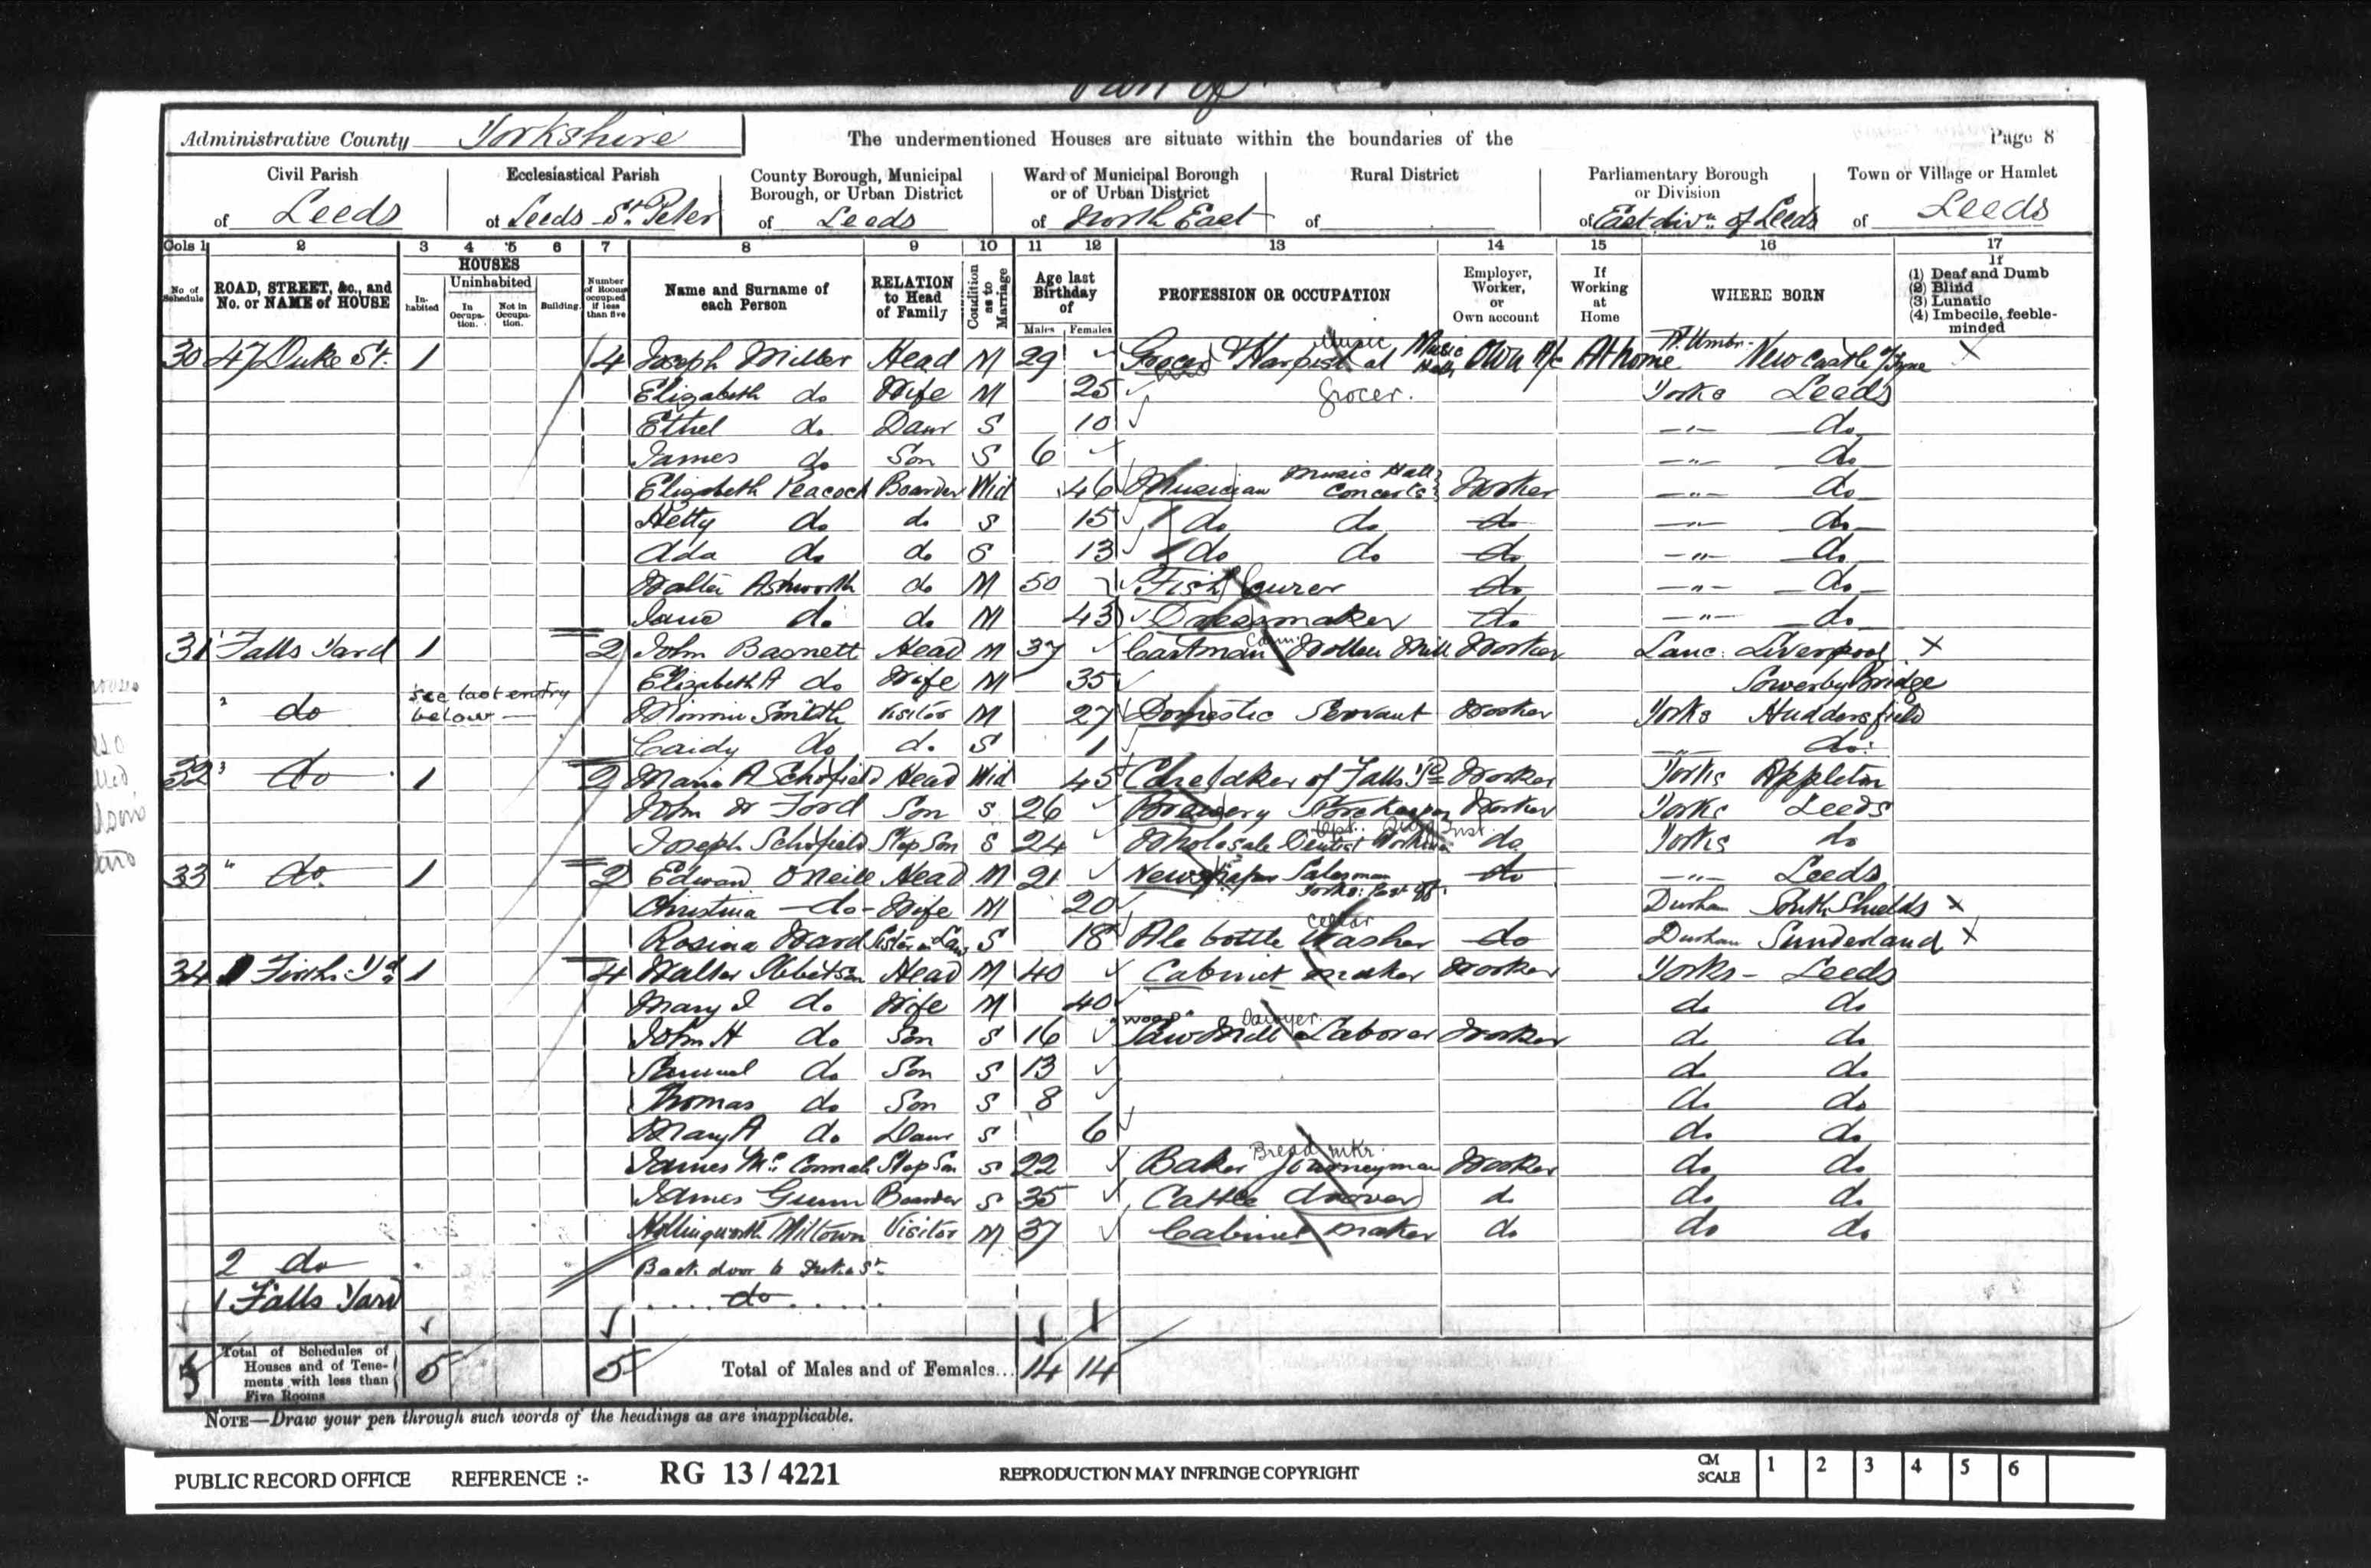 Administrative County Yorkshire The undermentioned Houses are situate within the boundaries of the Page 8
Civil Parish Ecclesiastical Parish County Borough, Municipal Borough, or Urban District Ward of Municipal Borough or of Urban District Rural District Parliamentary Borough or Division Town or Village or Hamlet
of Leeds of Leeds St. Peter of Leeds of North East of of East divn of Leeds of Leeds
Cols 1 2 3 4 5 6 7 8 9 10 11 12 13 14 15 16 17
No of Schedule ROAD, STREET, &c., and No. or NAME of HOUSE HOUSES Inhabited Uninhabited In Occupation. Not in Occupation. Building. Number of Rooms occupied if less than five Name and Surname of each Person RELATION to Head of Family Condition as to Marriage Age last Birthday of Males Females PROFESSION OR OCCUPATION Employer, Worker, or Own account If Working at Home WHERE BORN If (1) Deaf and Dumb (2) Blind (3) Lunatic (4) Imbecile, feeble-minded
30 47 Duke St. 1 4 Joseph Miller Head M 29 Grocer & Harpist at Music Halls Own A/c At home N. Umbr. Newcastle o/Tyne X
Elizabeth do Wife M 25 Grocer. Yorks Leeds
Ethel do Daur S 10 -"- do
James do Son S 6 -"- do
Elizabeth Peacock Boarder Wid 46 Musician Music Hall Concerts Worker -"- do
Hetty do do S 15 do do do -"- do
Ada do do S 13 do do do -"- do
Walter Ashworth do M 50 Fish Curer do -"- do
Jane do do M 43 Dressmaker do -"- do
31 Falls Yard 1 2 John Basnett Head M 37 Cartman Wollen Mill Worker Lanc: Liverpool X
Elizabeth A do Wife M 35 Sowerby Bridge
2 do see last entry below Minnie Smith Visitor M 27 Domestic Servant Worker Yorks Huddersfield
do do S 1 do
32 3 do 1 2 Maria A Schofield Head Wid 45 Caretaker of Falls Yd Worker Yorks Appleton
John W Ford Son S 26 Brewery Storekeeper Worker Yorks Leeds
Joseph Schofield Step Son S 24 Wholesale Dentist do Yorks do
33 " do 1 2 Edward O'Neill Head M 21 Newspaper Salesman do -"- Leeds
Christina do Wife M 20 Yorks: Post Durham South Shields X
Rosina Ward Sister in Law S 18 Ale bottle Washer cellar do Durham Sunderland X
34 1 Firths Yd 1 4 Walter Ibbetson Head M 40 Cabinet maker Worker Yorks - Leeds
Mary do Wife M 40 do do
John H do Son S 16 Saw Mill Laborer wood Sawyer. Worker do do
Samuel do Son S 13 do do
Thomas do Son S 8 do do
Mary A do Daur S 6 do do
James Mc Step Son S 22 Baker Journeyman Bread mkr. Worker do do
James Gunn Boarder S 35 Cattle drover do do do
Hollingworth Miltown Visitor M 37 Cabinet maker do do do
2 do Back door to Duke St
1 Falls Yard do
5 Total of Schedules of Houses and of Tenements with less than Five Rooms 5 5 Total of Males and of Females... 14 14
NOTE—Draw your pen through such words of the headings as are inapplicable.
PUBLIC RECORD OFFICE REFERENCE :- RG 13 / 4221 REPRODUCTION MAY INFRINGE COPYRIGHT CM SCALE 1 2 3 4 5 6